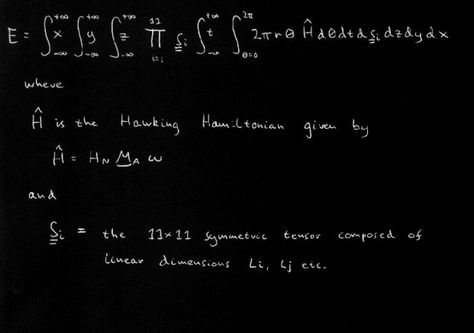 E = ∫x₋∞⁺∞ ∫y₋∞⁺∞ ∫z₋∞⁺∞ ∏ᵢ₌₁¹¹ S̳ᵢ ∫t₋∞⁺∞ ∫_θ₌₀^2π 2πrθ Ĥ dθ dt d S̳ᵢ dz dy dx
where
Ĥ is the Hawking Hamiltonian given by
Ĥ = H_N M̲_A ω
and
S̳ᵢ = the 11×11 symmetric tensor composed of
linear dimensions Li, Lj etc.